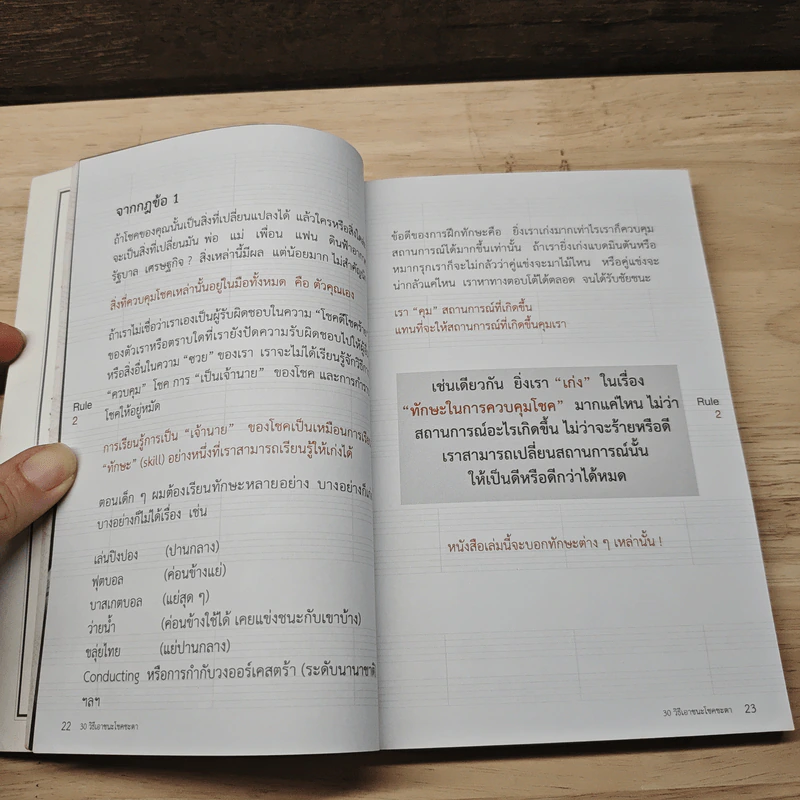 จากกฎข้อ 1
ถ้าโชคของคุณนั้นเป็นสิ่งที่เปลี่ยนแปลงได้ แล้วใครหรือสิ่งใด
จะเป็นสิ่งที่เปลี่ยนมัน พ่อ แม่ เพื่อน แฟน ดินฟ้าอากาศ
รัฐบาล เศรษฐกิจ ? สิ่งเหล่านี้มีผล แต่น้อยมาก ไม่สำคัญ
สิ่งที่ควบคุมโชคเหล่านั้นอยู่ในมือทั้งหมด คือ ตัวคุณเอง
ถ้าเราไม่เชื่อว่าเราเองเป็นผู้รับผิดชอบในความ “โชคดีโชคร้าย
ของตัวเราหรือตราบใดที่เรายังปัดความรับผิดชอบไปให้
หรือสิ่งอื่นในความ “ซวย” ของเรา เราจะไม่ได้เรียนรู้จักวิธี
“ควบคุม” โชค การ “เป็นเจ้านาย” ของโชค และการ
โชคให้อยู่หมัด
การเรียนรู้การเป็น “เจ้านาย” ของโชคเป็นเหมือนการ
“ทักษะ” (skill) อย่างหนึ่งที่เราสามารถเรียนรู้ให้เก่งได้
ตอนเด็ก ๆ ผมต้องเรียนทักษะหลายอย่าง บางอย่างก็
บางอย่างก็ไม่ได้เรื่อง เช่น
เล่นปิงปอง (ปานกลาง)
ฟุตบอล (ค่อนข้างแย่)
บาสเกตบอล (แย่สุด ๆ)
ว่ายน้ำ (ค่อนข้างใช้ได้ เคยแข่งชนะกับเขาบ้าง)
ขลุ่ยไทย (แย่ปานกลาง)
Conducting หรือการกำกับวงออร์เคสตร้า (ระดับนานาชาติ)
ฯลฯ
Rule
2
22 30 วิธีเอาชนะโชคชะตา
ข้อดีของการฝึกทักษะคือ ยิ่งเราเก่งมากเท่าไรเราก็ควบคุม
สถานการณ์ได้มากขึ้นเท่านั้น ถ้าเรายิ่งเก่งแบดมินตันหรือ
หมากรุกเราก็จะไม่กลัวว่าคู่แข่งจะมาไม้ไหน หรือคู่แข่งจะ
น่ากลัวแค่ไหน เราหาทางตอบโต้ได้ตลอด จนได้รับชัยชนะ
เรา “คุม” สถานการณ์ที่เกิดขึ้น
แทนที่จะให้สถานการณ์ที่เกิดขึ้นคุมเรา
เช่นเดียวกัน ยิ่งเรา “เก่ง” ในเรื่อง
“ทักษะในการควบคุมโชค” มากแค่ไหน ไม่ว่า
สถานการณ์อะไรเกิดขึ้น ไม่ว่าจะร้ายหรือดี
เราสามารถเปลี่ยนสถานการณ์นั้น
ให้เป็นดีหรือดีกว่าได้หมด
Rule
2
หนังสือเล่มนี้จะบอกทักษะต่าง ๆ เหล่านั้น !
30 วิธีเอาชนะโชคชะตา 23